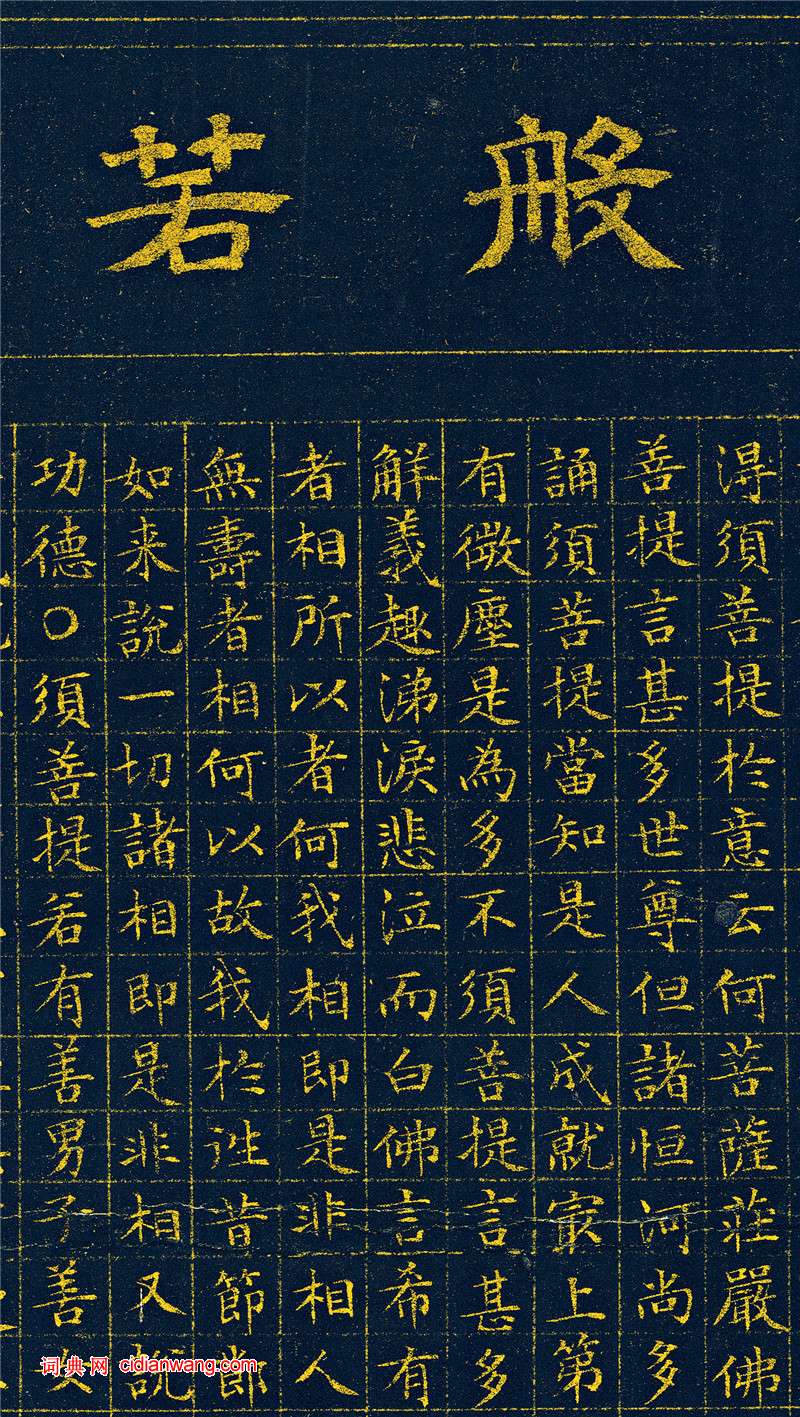 般若
得須菩提於意云何菩薩莊嚴佛
菩提言甚多世尊但諸恒河尚多
誦須菩提當知是人成就最上第
有微塵是為多不須菩提言甚多
解義趣涕淚悲泣而白佛言希有
者相所以者何我相即是非相人
無壽者相何以故我於往昔節節
如来說一切諸相即是非相又說
功德〇須菩提若有善男子善女
词典网 cidianwang.com